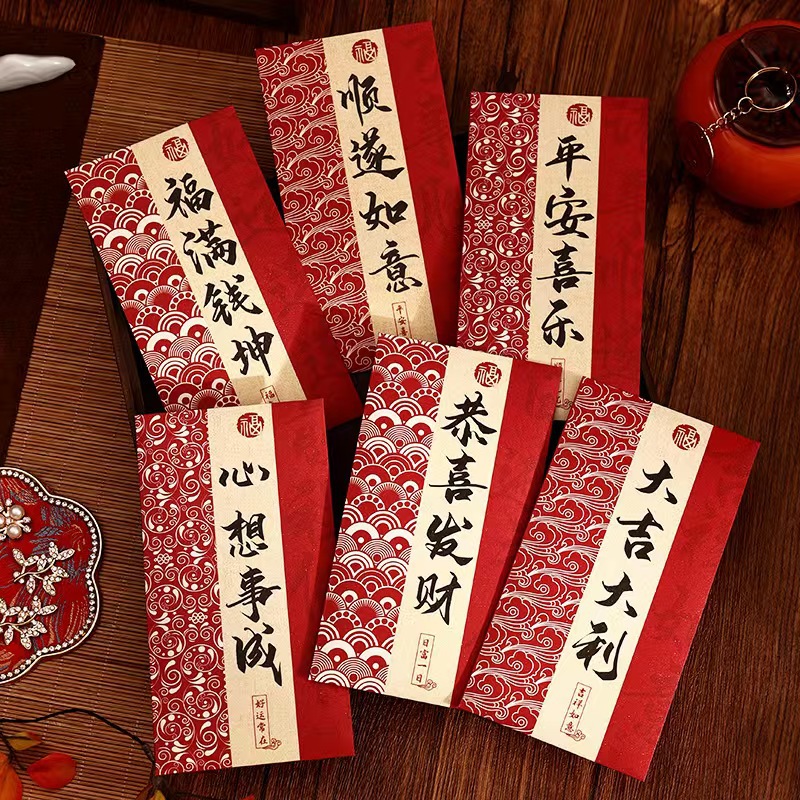 福
福满钱坤
福
顺遂如意
平安喜
福
平安喜乐
福
心想事成
好运常在
福
恭喜发财
日富一日
福
大吉大利
吉祥如意